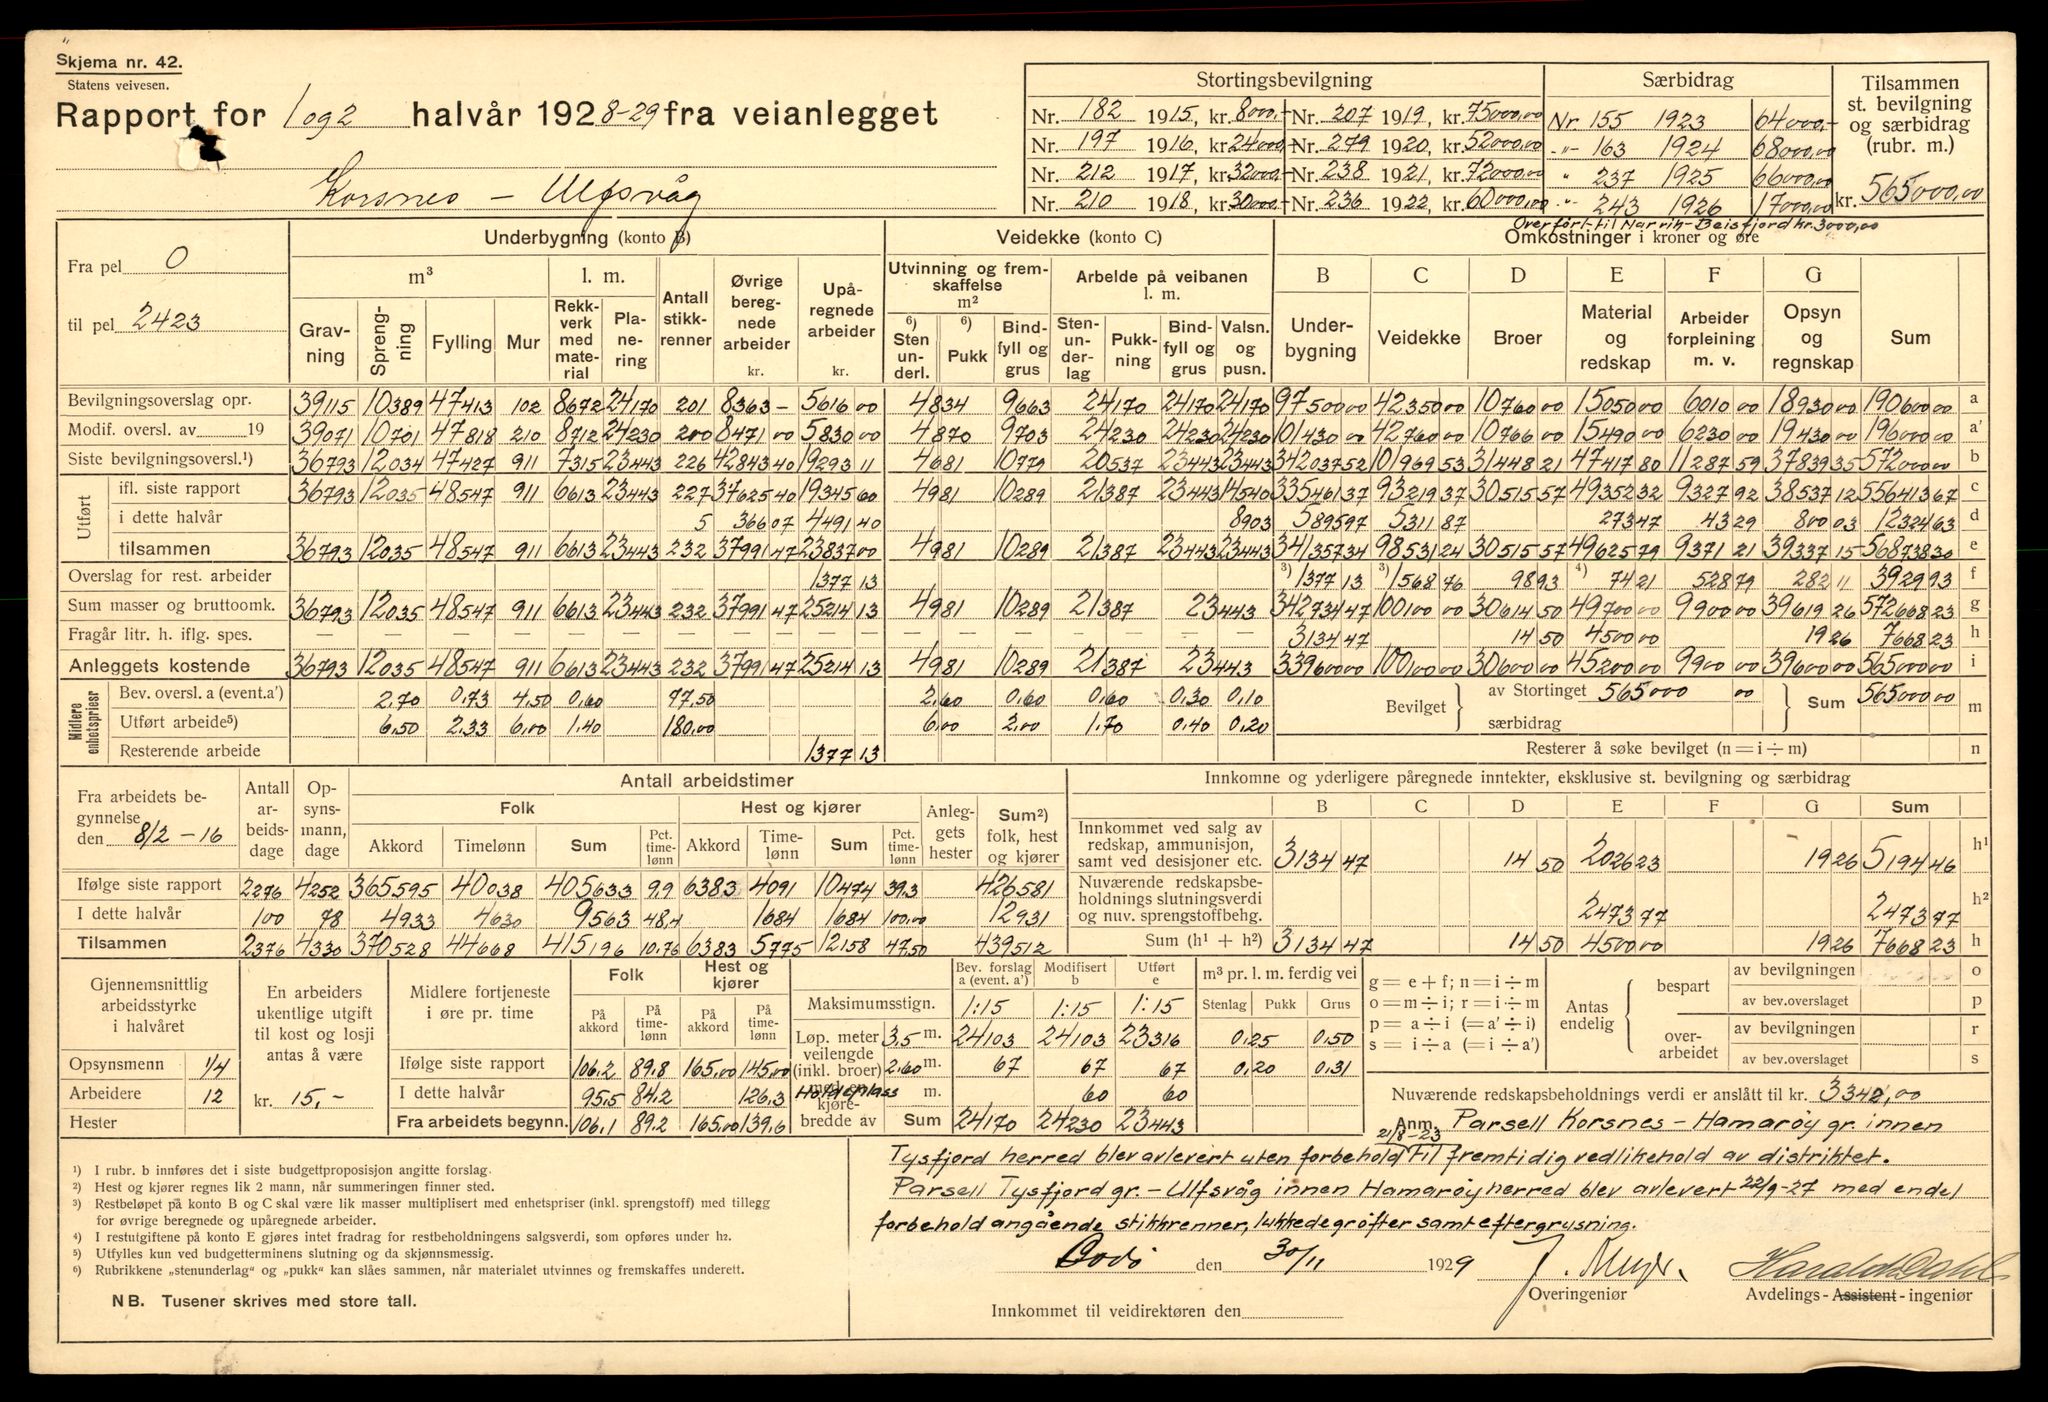 Skjema nr. 42.
Statens veivesen.
Rapport for 1 og 2 halvår 1928-29 fra veianlegget
Korsnes - Ulfsvåg
Stortingsbevilgning
Nr. 182 1915, kr. 8000,- Nr. 207 1919, kr. 75000,00
Nr. 197 1916, kr. 24000,- Nr. 279 1920, kr. 52000,00
Nr. 212 1917, kr. 32000,- Nr. 238 1921, kr. 72000,00
Nr. 210 1918, kr. 30000,- Nr. 236 1922, kr. 60000,00
Særbidrag
Nr 155 1923 64000,-
-"- 163 1924 68000,00
" 237 1925 66000,00
-"- 243 1926 17000,00
Overført til Narvik-Beisfjord kr. 3000,00
Tilsammen
st. bevilgning
og særbidrag
(rubr. m.)
kr. 565000,00
Fra pel 0
til pel 2423
Underbygning (konto B)
m³ l. m.
Gravning Sprengning Fylling Mur Rekkverk med material Planering Antall stikkrenner Øvrige beregnede arbeider kr. Upåregnede arbeider kr.
Veidekke (konto C)
Utvinning og fremskaffelse m² Arbeide på veibanen l. m.
⁶) Sten underl. ⁶) Pukk Bindfyll og grus Stenunderlag Pukkning Bindfyll og grus Valsn. og pusn.
Omkostninger i kroner og øre
B C D E F G
Underbygning Veidekke Broer Material og redskap Arbeider forpleining m. v. Opsyn og regnskap Sum
Bevilgningsoverslag opr. 39115 10389 47413 102 8672 24170 201 8363 - 5616 00 4834 9663 24170 24170 24170 97500 00 42350 00 10760 00 15050 00 6010 00 18930 00 190600 00 a
Modif. oversl. av 19 39071 10701 47818 210 8712 24230 200 8471 00 5830 00 4870 9703 24230 24230 24230 101430 00 42760 00 10766 00 15490 00 6230 00 19430 00 196000 00 a'
Siste bevilgningsoversl.¹) 36793 12034 47427 911 7315 23443 226 42843 40 19293 11 4681 10779 20537 23443 23443 342037 52 101969 53 31448 21 47417 80 11287 59 37839 35 572000 00 b
Utført
ifl. siste rapport 36793 12035 48547 911 6613 23443 227 37625 40 19345 60 4981 10289 21387 23443 14540 335461 37 93219 37 30515 57 49352 32 9327 92 38537 12 556413 67 c
i dette halvår 5 366 07 4491 40 8903 5895 97 5311 87 273 47 43 29 800 03 12324 63 d
tilsammen 36793 12035 48547 911 6613 23443 232 37991 47 23837 00 4981 10289 21387 23443 23443 341357 34 98531 24 30515 57 49625 79 9371 21 39337 15 568738 30 e
Overslag for rest. arbeider 1377 13 ³) 1377 13 ³) 1568 76 98 93 ⁴) 74 21 528 79 282 11 3929 93 f
Sum masser og bruttoomk. 36793 12035 48547 911 6613 23443 232 37991 47 25214 13 4981 10289 21387 23443 342734 47 100100 00 30614 50 49700 00 9900 00 39619 26 572668 23 g
Fragår litr. h. iflg. spes. — — — — — — — — — — — — — 3134 47 14 50 4500 00 19 26 7668 23 h
Anleggets kostende 36793 12035 48547 911 6613 23443 232 37991 47 25214 13 4981 10289 21387 23443 339600 00 100100 00 30600 00 45200 00 9900 00 39600 00 565000 00 i
Midlere enhetspriser
Bev. oversl. a (event.a') 2.70 0,73 4.50 0,60 77.50 2,60 0,60 0,60 0,30 0,10
Utført arbeide⁵) 6,50 2,33 6,00 1,40 180,00 6,00 2,00 1,70 0,40 0,20
Resterende arbeide 1377 13
Bevilget av Stortinget 565000 00 Sum 565000 00 m
særbidrag
Resterer å søke bevilget (n = i ÷ m) n
Fra arbeidets begynnelse
den 8/2 - 16
Antall arbeidsdage Opsynsmann, dage
Antall arbeidstimer
Folk Hest og kjører Anleggets hester Sum²) folk, hest og kjører
Akkord Timelønn Sum Pct. timelønn Akkord Timelønn Sum Pct. timelønn
Ifølge siste rapport 2276 4252 365595 40038 405633 9,9 6383 4091 10474 39.3 426581
I dette halvår 100 78 4933 4630 9563 48,4 1684 1684 100,00 12931
Tilsammen 2376 4330 370528 44668 415196 10.76 6383 5775 12158 47.50 439512
Innkomne og yderligere påregnede inntekter, eksklusive st. bevilgning og særbidrag
B C D E F G Sum
Innkommet ved salg av redskap, ammunisjon, samt ved desisjoner etc. 3134 47 14 50 2026 23 19 26 5194 46 h¹
Nuværende redskapsbeholdnings slutningsverdi og nuv. sprengstoffbehg. 2473 77 2473 77 h²
Sum (h¹ + h²) 3134 47 14 50 4500,00 19 26 7668 23 h
Gjennemsnittlig arbeidsstyrke i halvåret
Opsynsmenn 1/4
Arbeidere 12
Hester
En arbeiders ukentlige utgift til kost og losji antas å være
kr. 15,-
Midlere fortjeneste i øre pr. time
Folk Hest og kjører
På akkord På timelønn På akkord På timelønn
Ifølge siste rapport 106,2 89.8 165,00 145,00
I dette halvår 95,5 84.2 126,3
Fra arbeidets begynn. 106,1 89.2 165,00 139,6
Bev. forslag a (event. a') Modifisert b Utført e
Maksimumsstign. 1:15 1:15 1:15
Løp. meter veilengde (inkl. broer) med en kjørebredde av
3,5 m. 24103 24103 23316
2,60 m. 67 67 67
m. 60 60
Sum 24170 24230 23443
m³ pr. l. m. ferdig vei
Stenlag Pukk Grus
0,25 0,50
0,20 0,31
g = e + f; n = i ÷ m
o = m ÷ i; r = i ÷ m
p = a ÷ i (= a' ÷ i)
s = i ÷ a (= i ÷ a')
Antas endelig
bespart av bevilgningen o
av bev.overslaget p
overarbeidet av bevilgningen r
av bev.overslaget s
Nuværende redskapsbeholdnings verdi er anslått til kr. 3342,00
Anm. Parsell Korsnes - Hamarøy gr. innen
Tysfjord herred blev avlevert 21/8-23 uten forbehold til fremtidig vedlikehold av distriktet.
Parsell Tysfjord gr. - Ulfsvåg innen Hamarøy herred blev avlevert 22/9-27 med endel
forbehold angående stikkrenner, lukkede grøfter samt eftergrusning.
Bodö den 30/11 1929
J. Meyer.
Overingeniør
Harald Dahl
Avdelings-Assistent-ingeniør
Innkommet til veidirektøren den
¹) I rubr. b innføres det i siste budgettproposisjon angitte forslag.
²) Hest og kjører regnes lik 2 mann, når summeringen finner sted.
³) Restbeløpet på konto B og C skal være lik masser multiplisert med enhetspriser (inkl. sprengstoff) med tillegg
for øvrige beregnede og upåregnede arbeider.
⁴) I restutgiftene på konto E gjøres intet fradrag for restbeholdningens salgsverdi, som opføres under h2.
⁵) Utfylles kun ved budgetterminens slutning og da skjønnsmessig.
⁶) Rubrikkene „stenunderlag" og „pukk" kan slåes sammen, når materialet utvinnes og fremskaffes underett.
NB. Tusener skrives med store tall.